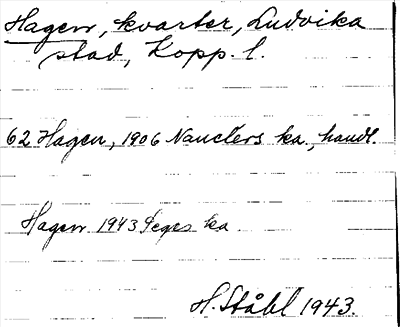 Hagen, kvarter, Ludvika
stad, Kopp. l.
62 Hagen, 1906 Nauclérs ka., handl.
Hagen 1943 Seges ka
H. Ståhl 1943.